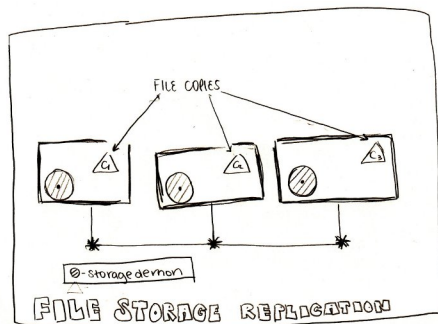 FILE COPIES
C1 C2 C3
-storage demon
FILE STORAGE REPLICATION